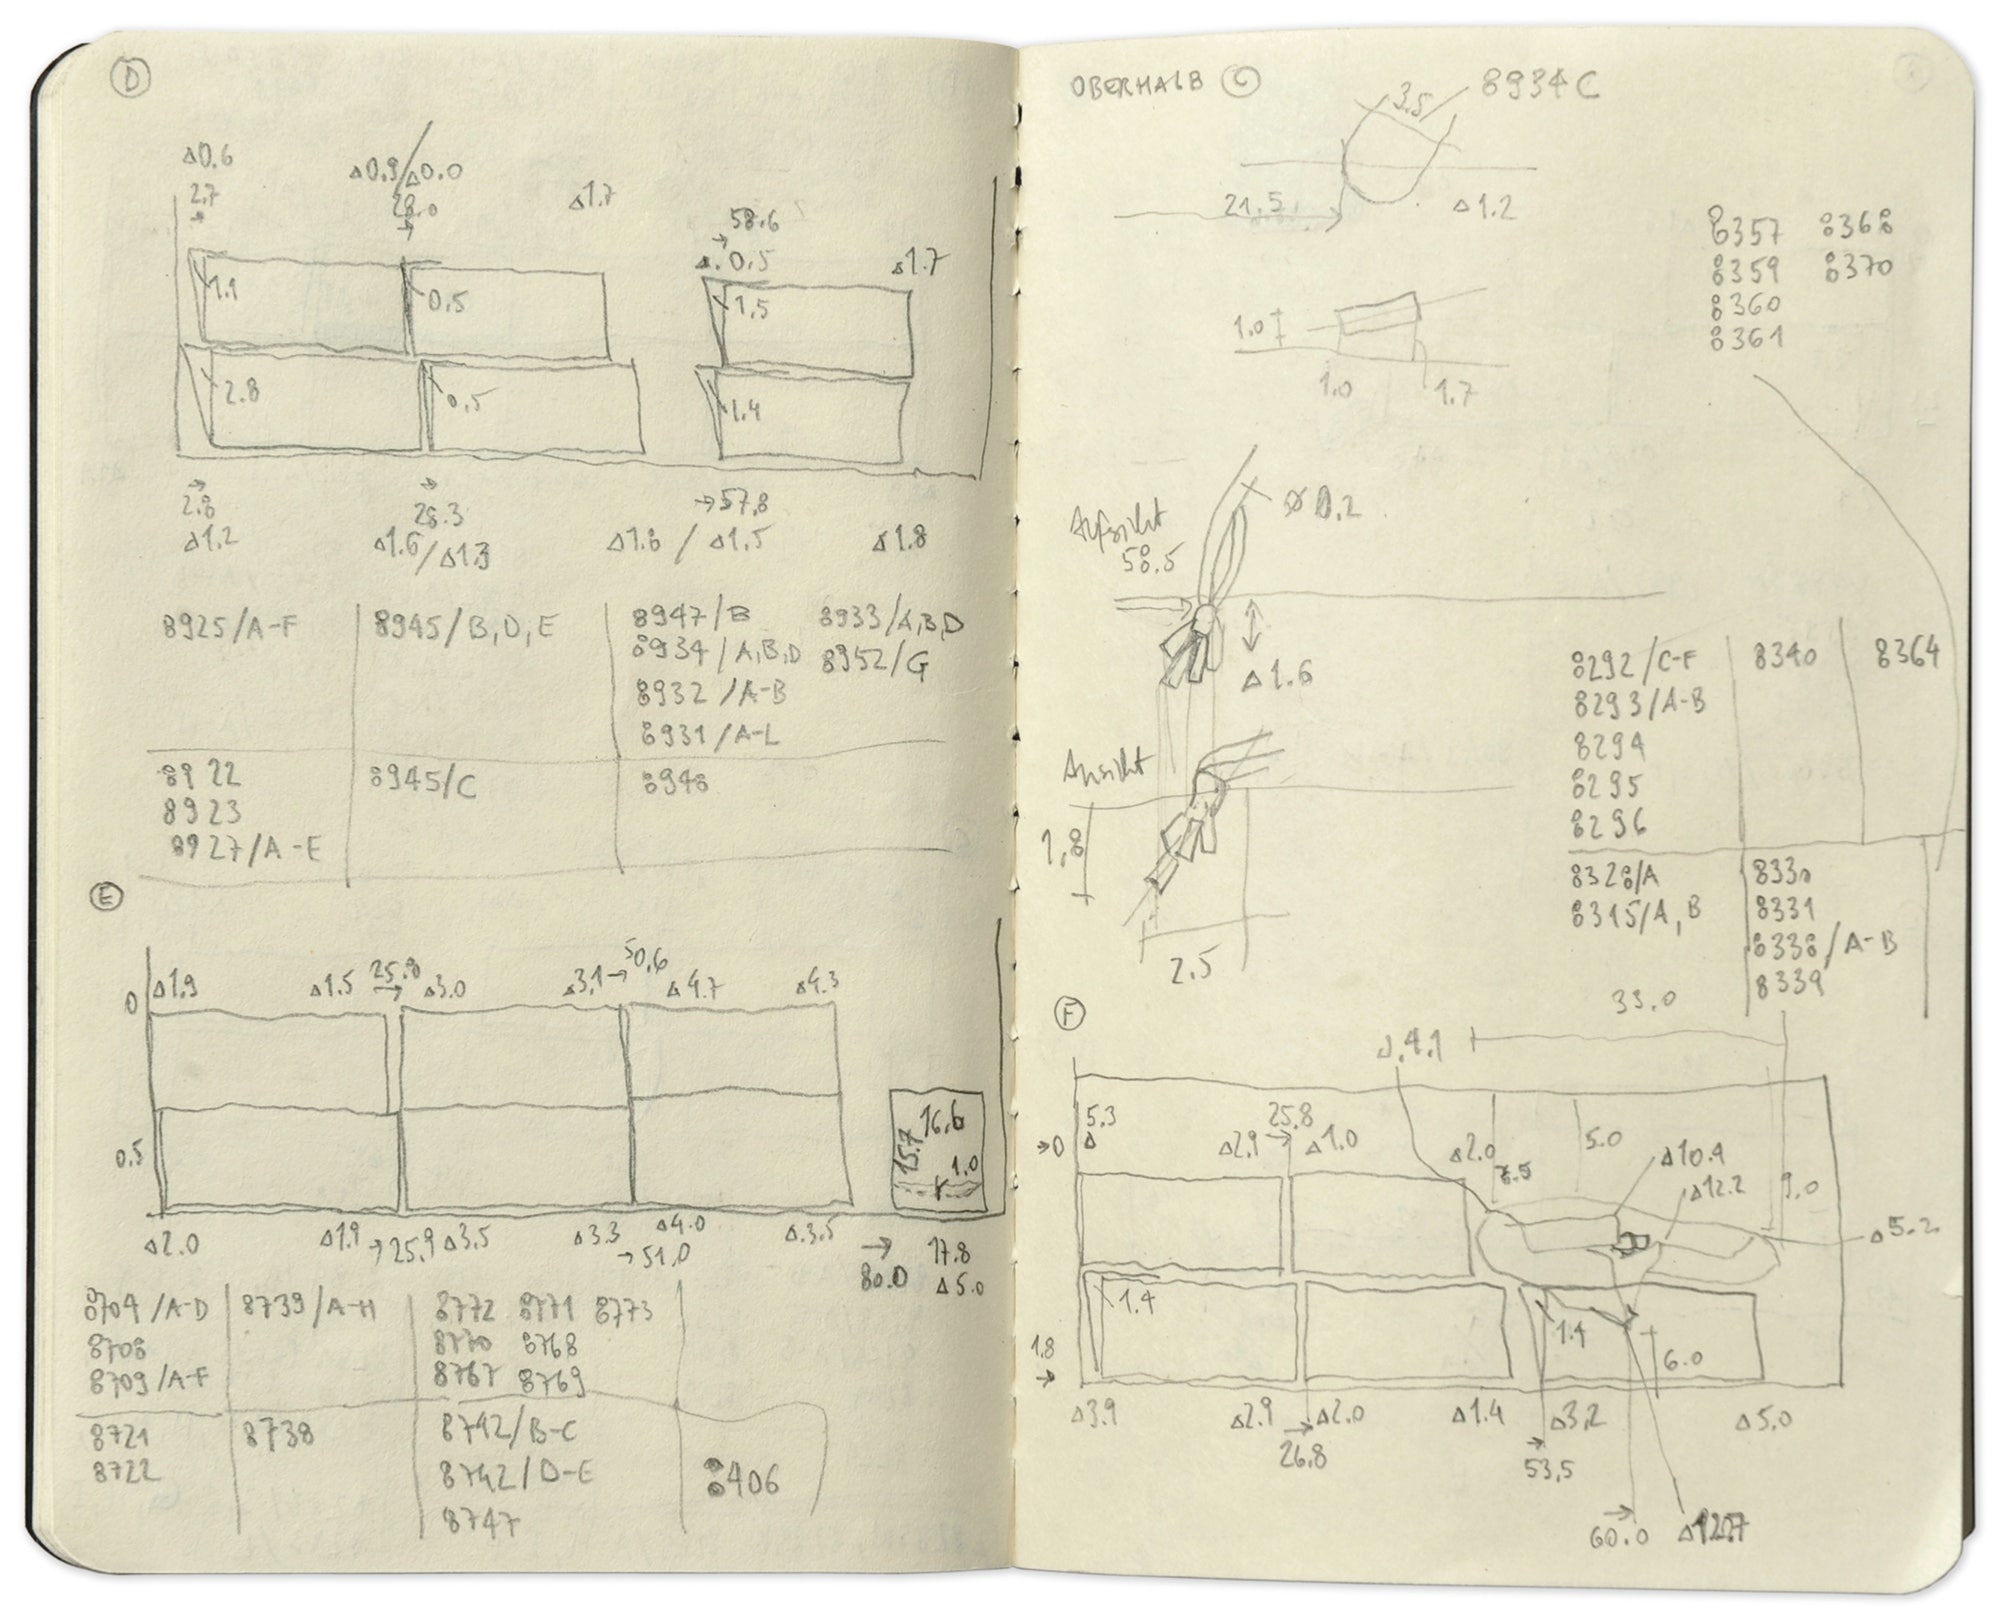 D
Δ0.6
Δ0.9/Δ0.0
Δ1.7
2.7
28.0
58.6
Δ0.5
Δ1.7
1.1
0.5
1.5
2.8
0.5
1.4
2.8
28.3
→57.8
Δ1.2
Δ1.6/Δ1.3
Δ1.8 / Δ1.5
Δ1.8
8925/A-F
8945/B,D,E
8947/B
8933/A,B,D
8934/A,B,D
8952/G
8932/A-B
8931/A-L
8922
8945/C
8948
8923
8927/A-E
E
Δ1.9
Δ1.5
25.8
Δ3.0
Δ3.1→
50.6
Δ4.7
Δ4.3
0
0.5
16.6
15.7
1.0
Δ2.0
Δ1.9
→25.9
Δ3.5
Δ3.3
→51.0
Δ4.0
Δ3.5
→
80.0
17.8
Δ5.0
8704/A-D
8739/A-H
8772 8771 8773
8708
8770 8768
8709/A-F
8767 8769
8721
8738
8742/B-C
8722
8742/D-E
8406
8747
OBERHALB C
3.5
8934C
21.5
Δ1.2
8357 8368
8359 8370
8360
8361
1.0
1.0
1.7
Aufsicht
58.5
Ø0.2
Δ1.6
Ansicht
1,8
2.5
8292/C-F
8340
8364
8293/A-B
8294
8295
8296
8328/A
8330
8315/A,B
8331
8338/A-B
8339
F
33.0
4.1
→0
5.3
Δ
Δ2.9
25.8
→
Δ1.0
Δ2.0
5.0
Δ10.4
Δ12.2
9.0
Δ5.2
1.4
1.4
6.0
1.8
→
Δ3.9
Δ2.9
Δ2.0
Δ1.4
Δ3.2
Δ5.0
→
26.8
→
53.5
→
60.0